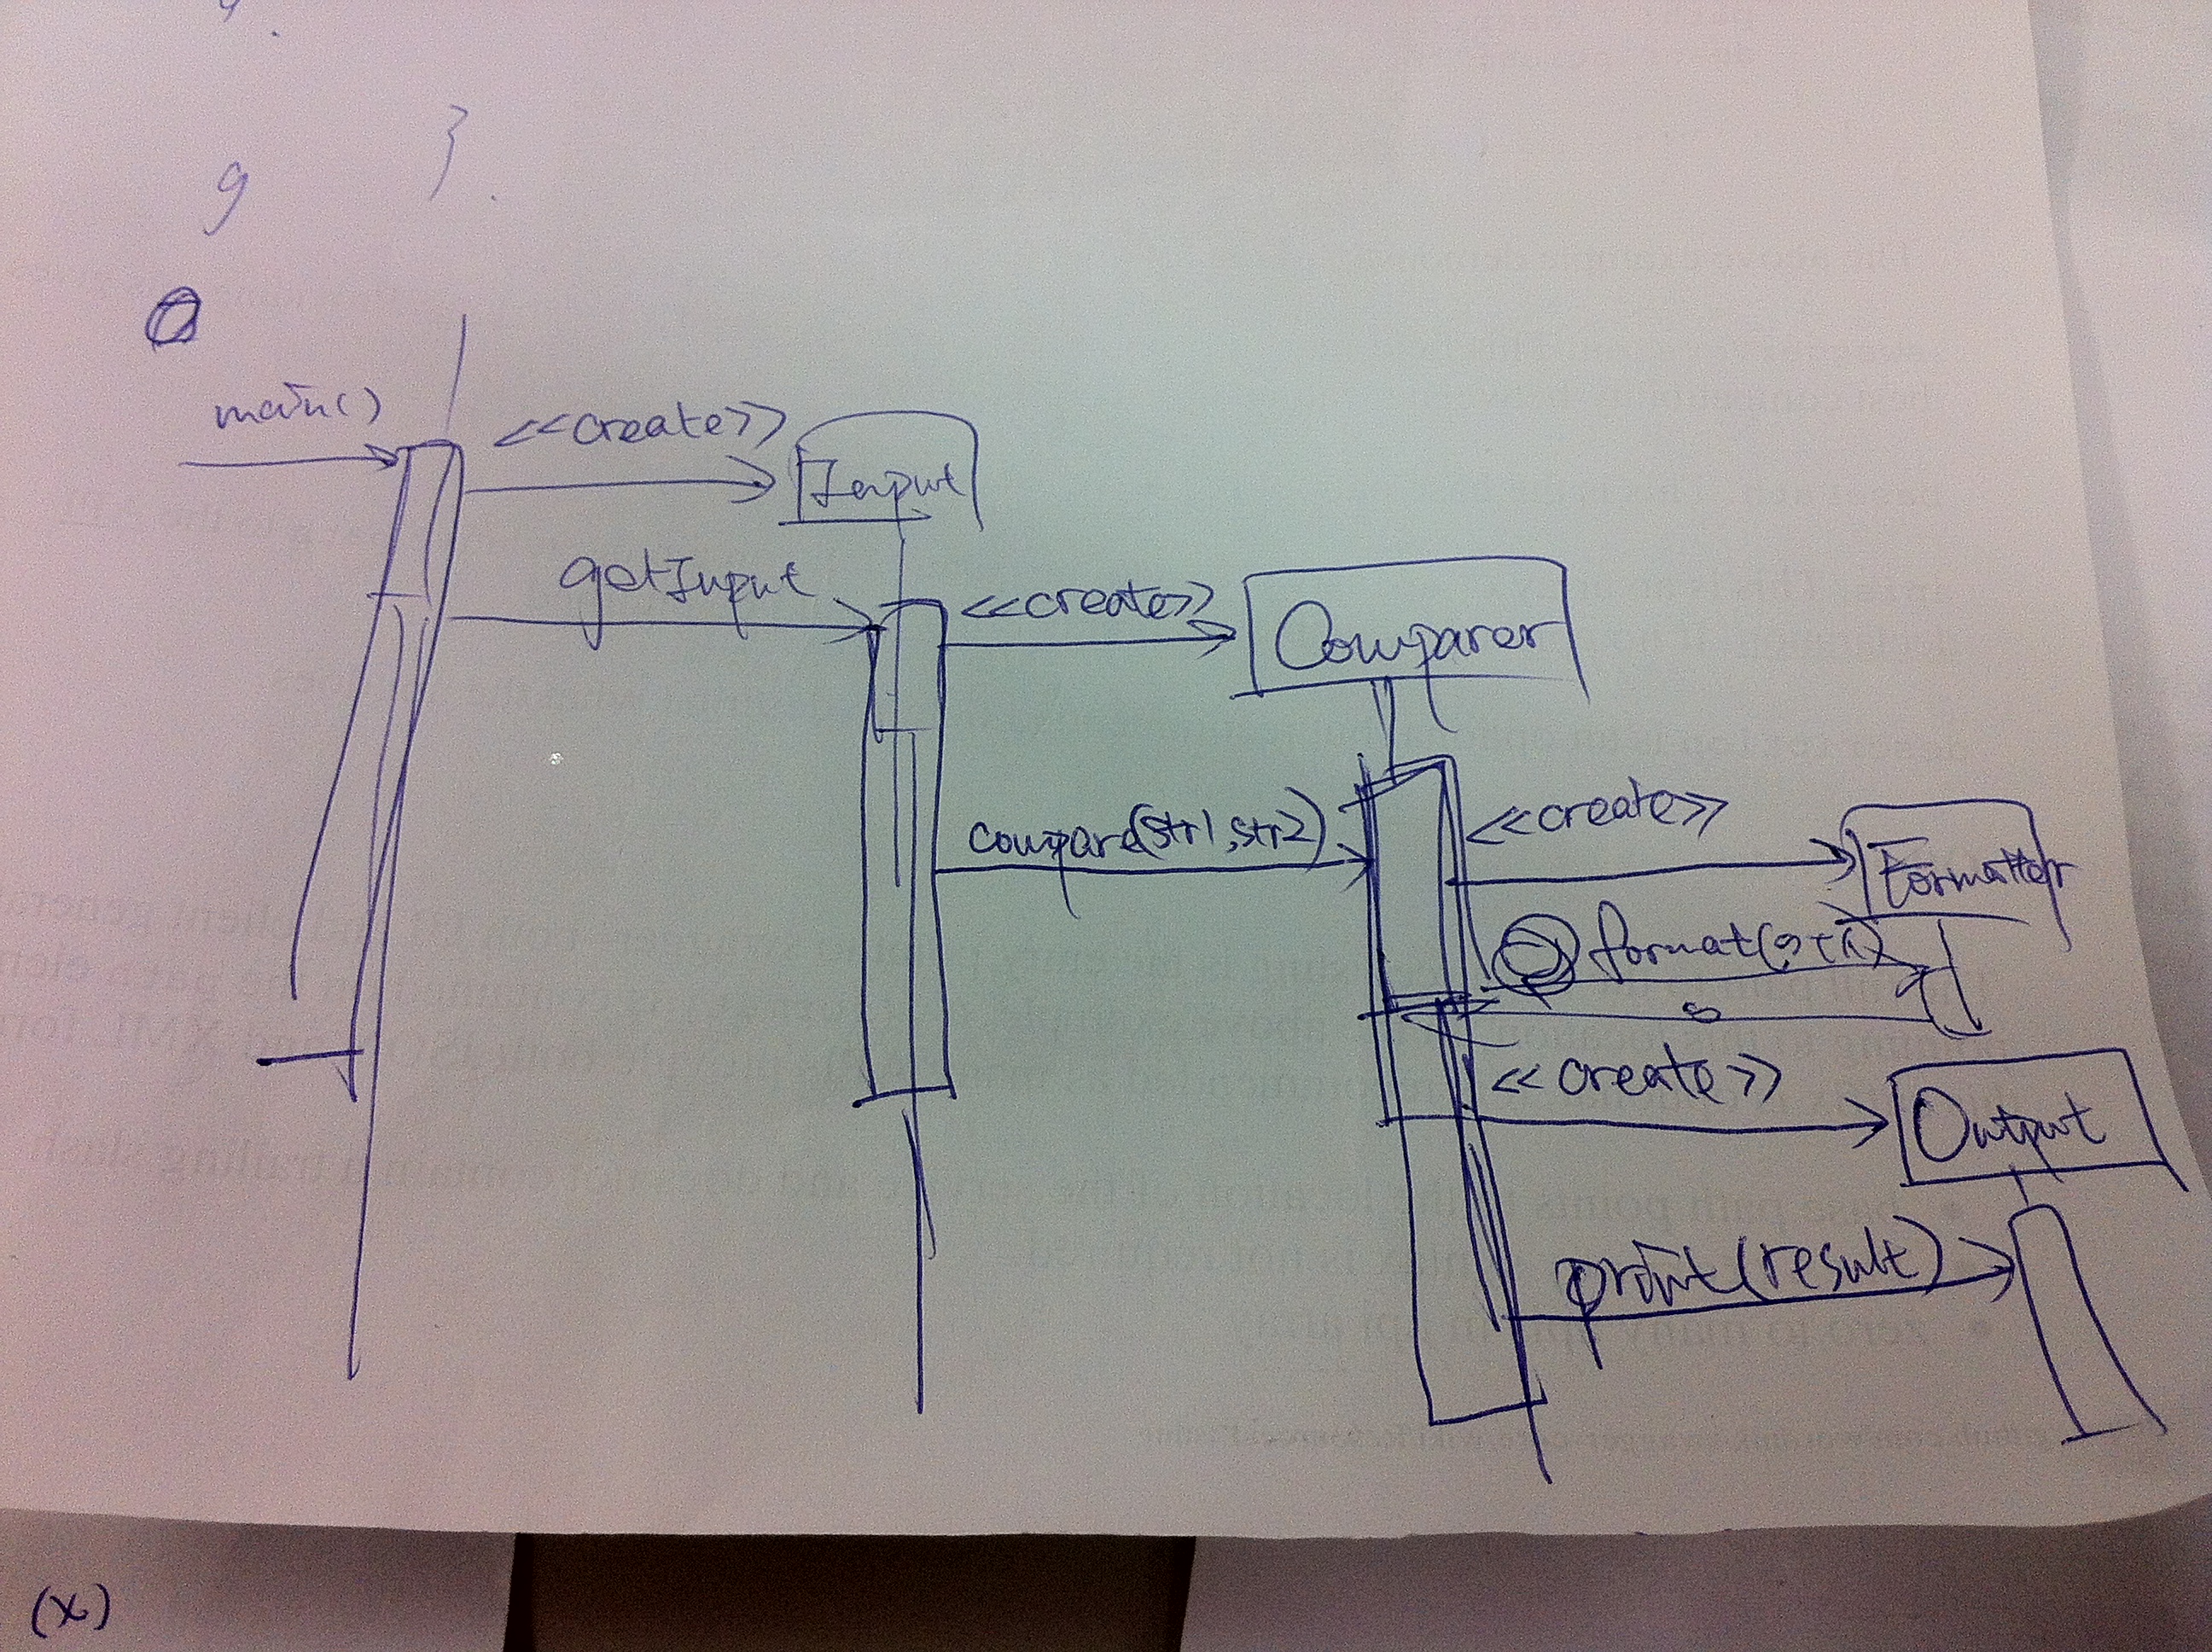 main()
<<create>>
Input
getInput
<<create>>
Comparer
compare(str1,str2)
<<create>>
Formatter
format(str1)
<<create>>
Output
print(result)
(x)